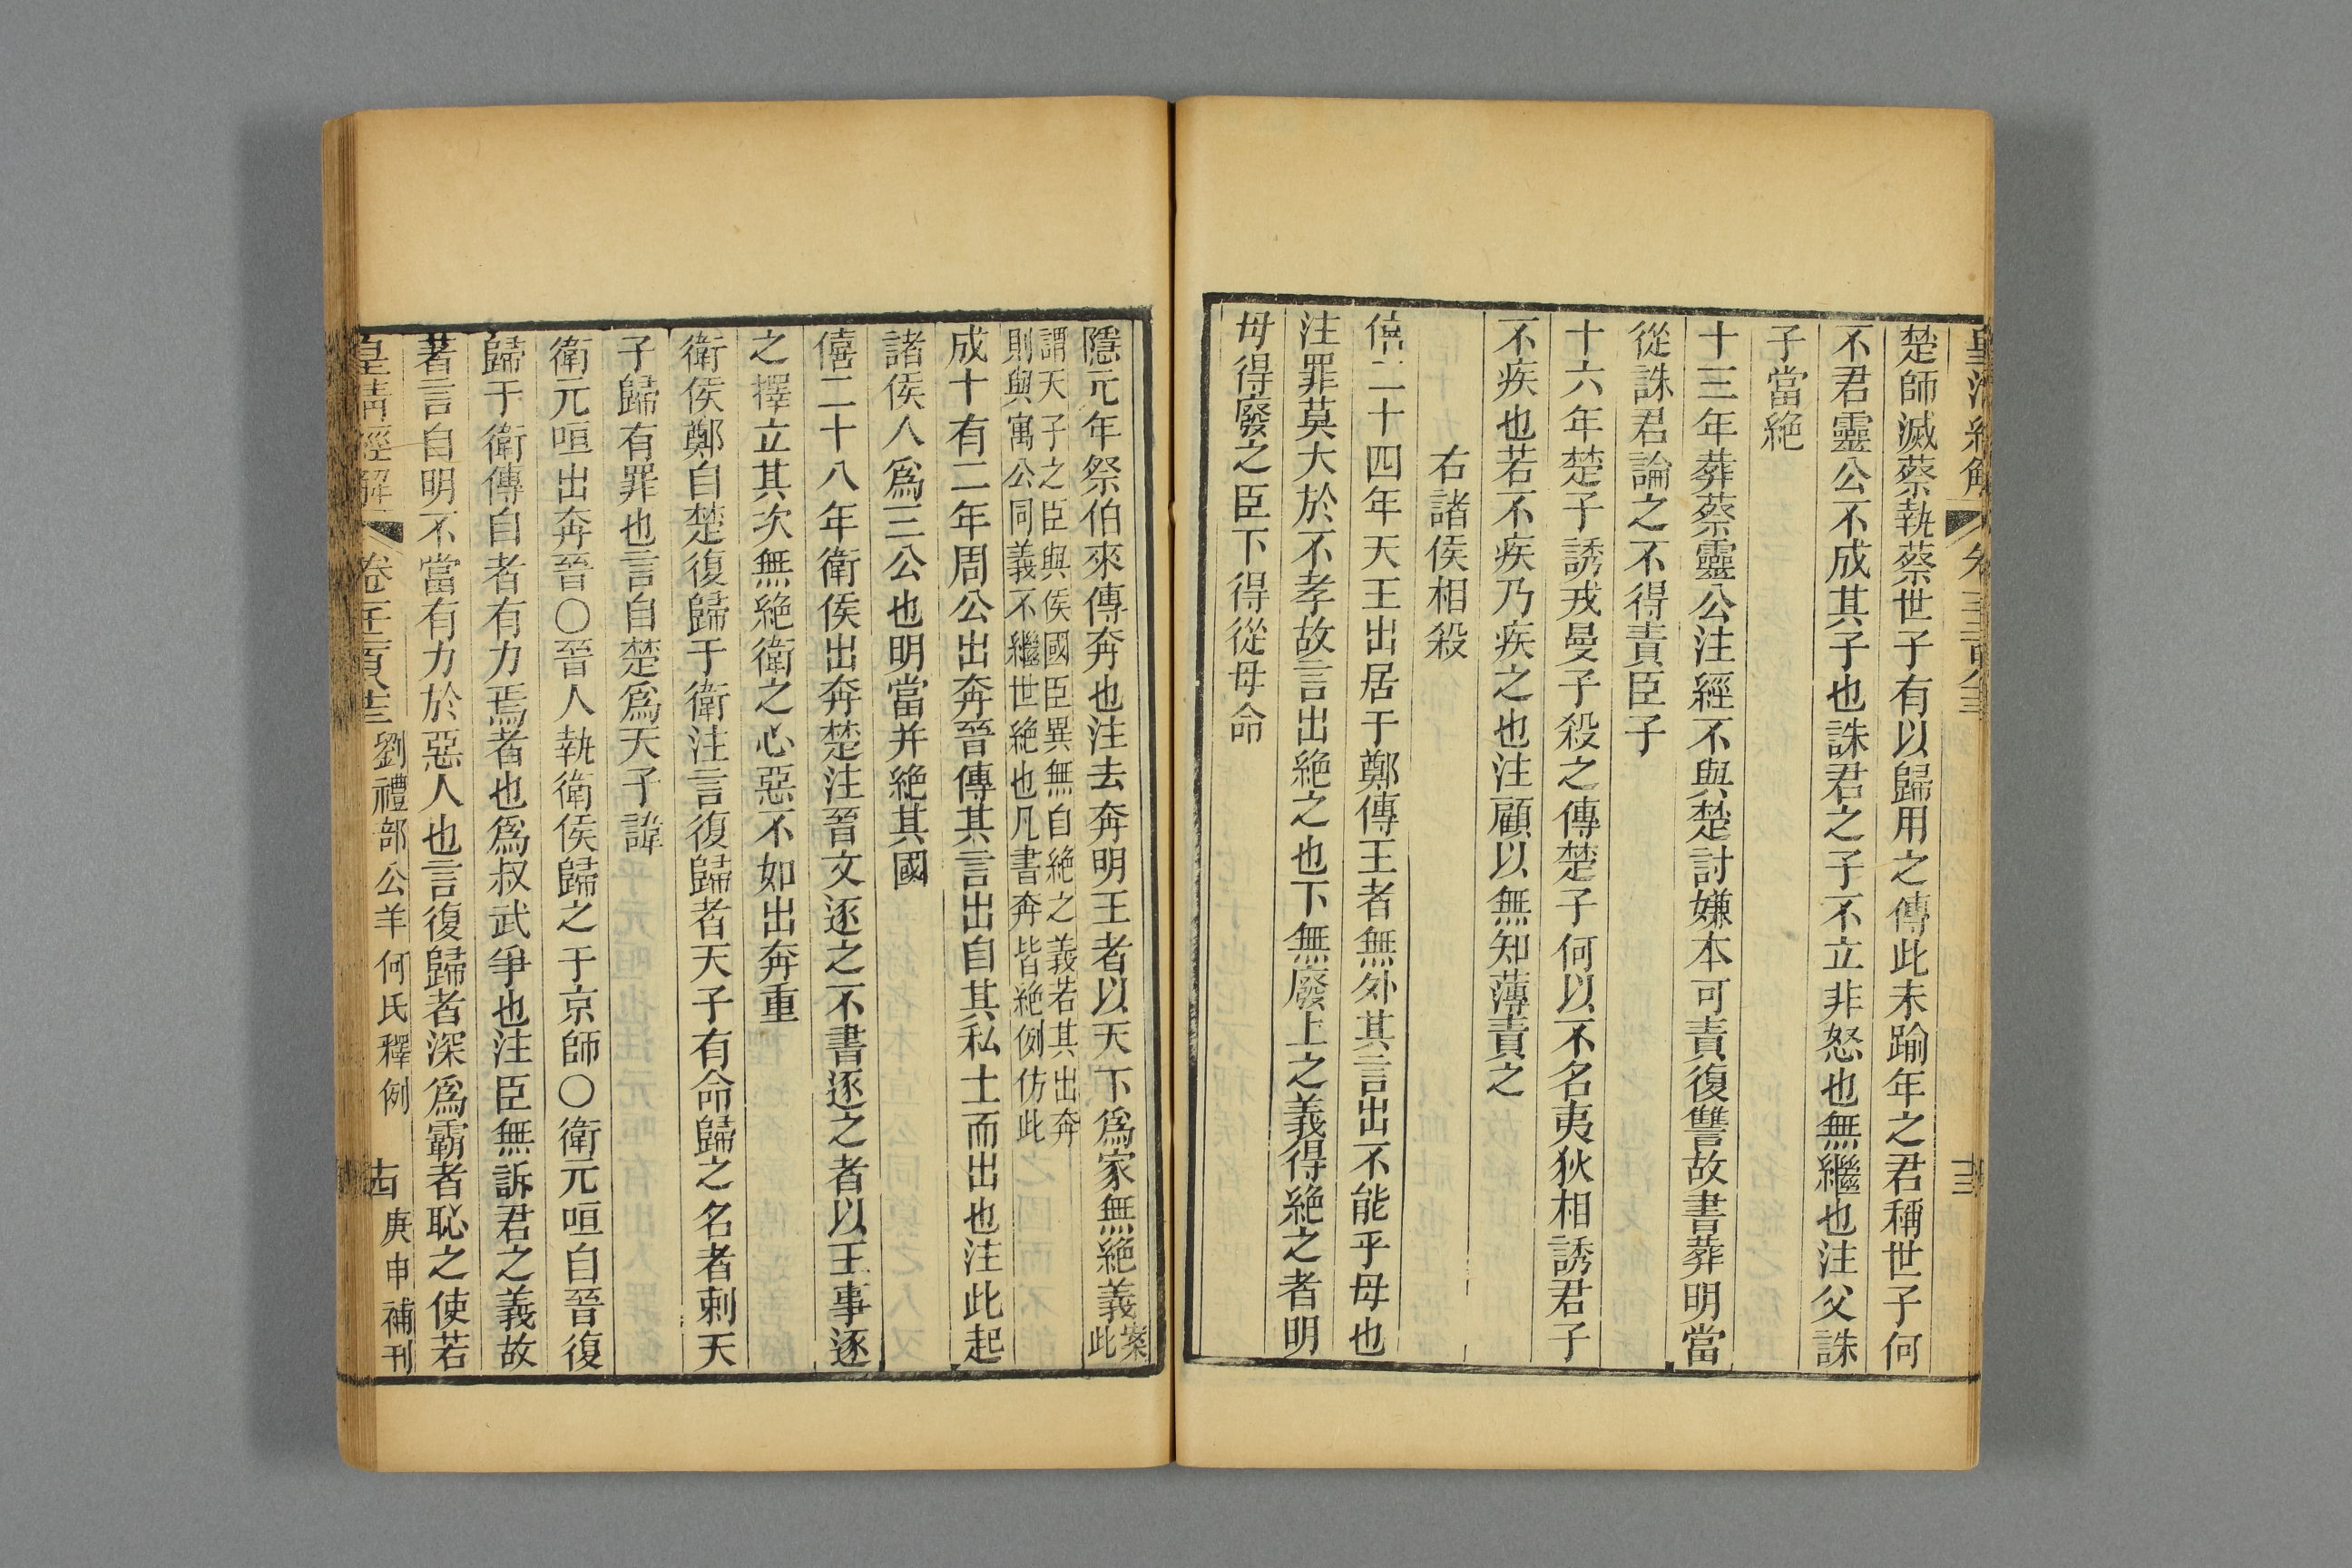 楚師滅蔡執蔡世子有以歸用之傳此未踰年之君稱世子何
不君靈公不成其子也誅君之子不立非怒也無繼也注父誅
子當絶
十三年葬蔡靈公注經不與楚討嫌本可責復讐故書葬明當
從誅君論之不得責臣子
十六年楚子誘戎曼子殺之傳楚子何以不名夷狄相誘君子
不疾也若不疾乃疾之也注顧以無知薄責之
右諸侯相殺
僖二十四年天王出居于鄭傳王者無外其言出不能乎母也
注罪莫大於不孝故言出絶之也下無廢上之義得絶之者明
母得廢之臣下得從母命
隱元年祭伯來傳奔也注去奔明王者以天下爲家無絶義案此
謂天子之臣與侯國臣異無自絶之義若其出奔
則與寓公同義不繼世絶也凡書奔皆絶例仿此
成十有二年周公出奔晉傳其言出自其私土而出也注此起
諸侯人爲三公也明當并絶其國
僖二十八年衛侯出奔楚注晉文逐之不書逐之者以王事逐
之擇立其次無絶衛之心惡不如出奔重
衛侯鄭自楚復歸于衛注言復歸者天子有命歸之名者刺天
子歸有罪也言自楚爲天子諱
衛元咺出奔晉〇晉人執衛侯歸之于京師〇衛元咺自晉復
歸于衛傳自者有力焉者也爲叔武爭也注臣無訴君之義故
著言自明不當有力於惡人也言復歸者深爲霸者恥之使若
皇清經解 卷千二百八十三 劉禮部公羊何氏釋例 十四 庚申補刊